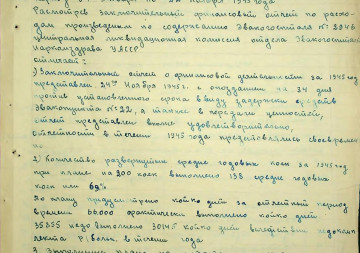 1945 года
Рассмотрев заключительный финансовый отчет по расхо-
дам произведенным по содержанию Эвакогоспиталя № 2946
центральная ликвидационная комиссия отдела Эвакогоспиталей
наркомздрава УАССР
отмечает:
1) Заключительный отчет о финансовой деятельности за 1945 год
представлен 24го Ноября 1945 г. с опозданием на 24 дня
против установленного срока в виду задержки
Эвакопункта № 22, а также в передачи ценностей
отчет представлен вполне удовлетворительно,
отчетность в течении 1945 года представлялись своевремен-
но
2) Количество развернутых средне годовых коек за 1945 год
при плане на 200 коек выполнено 138 средне годовых
коек или 69%
По плану предусмотрено койко дней за отчетный период
времени 66000 фактически выполнено койко дней
35855 недовыполнено 30145 койко дней вследствии
в течении года